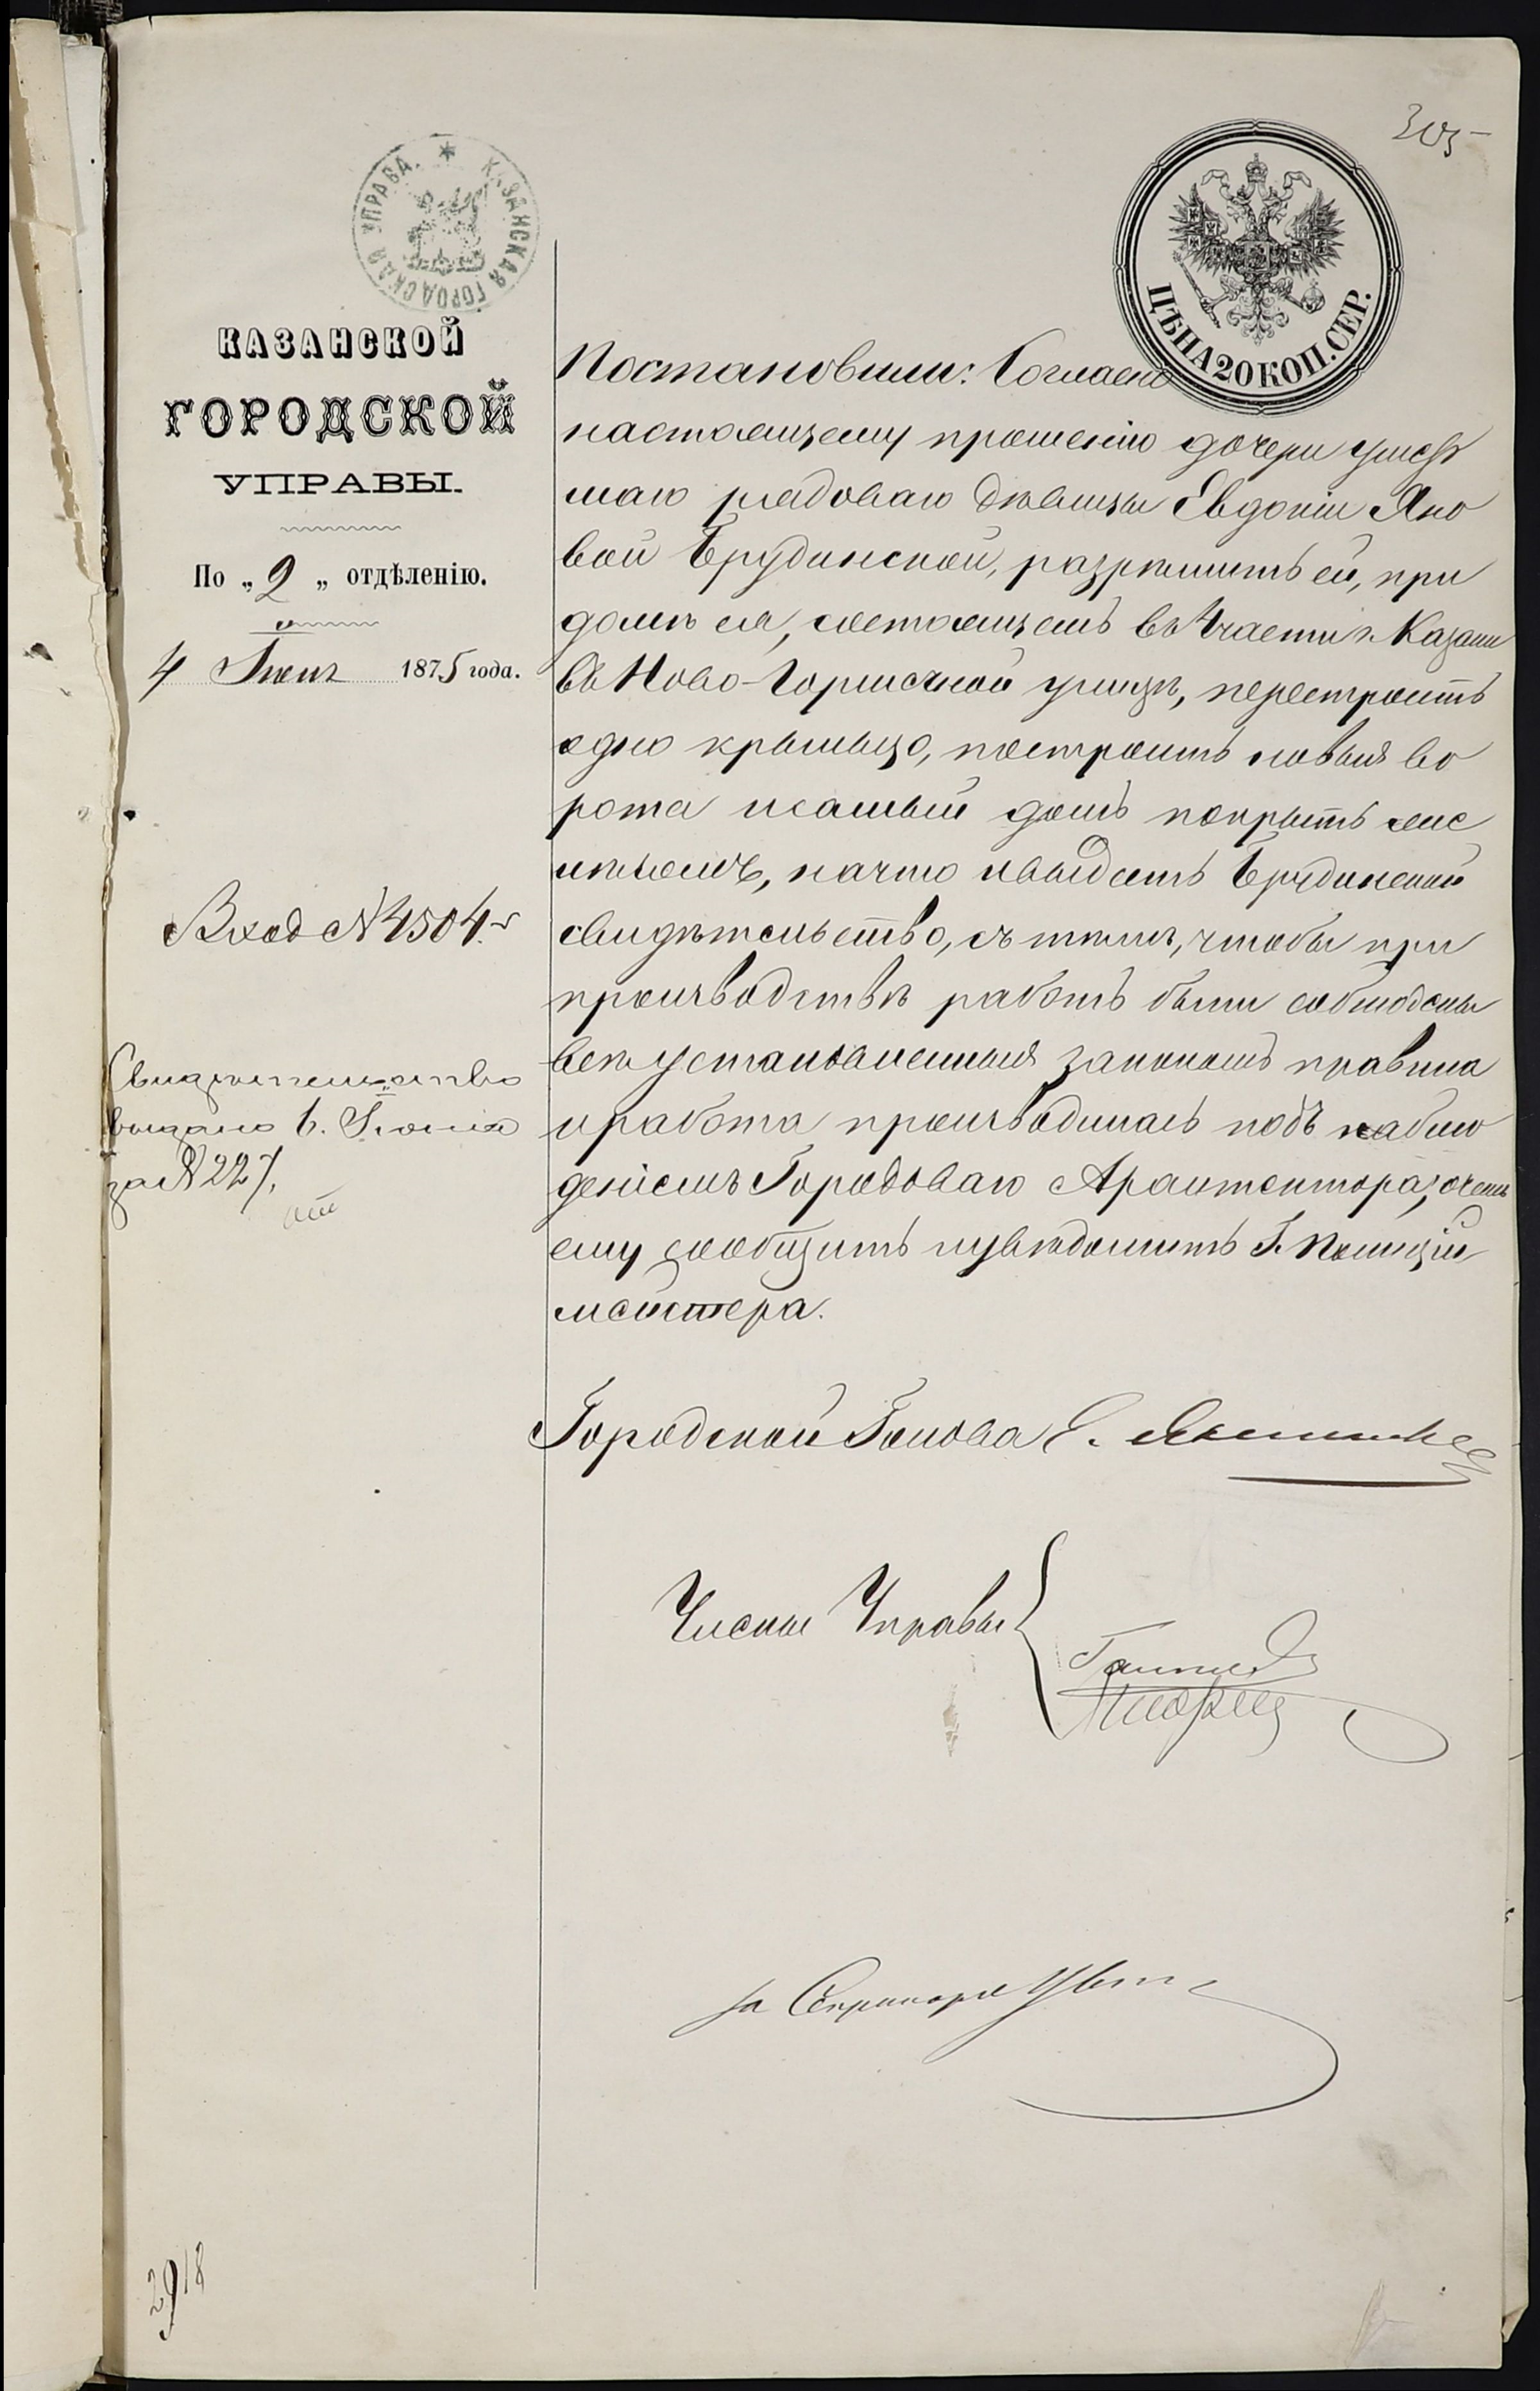 305
КАЗАНСКАЯ ГОРОДСКАЯ УПРАВА.
ЦѢНА 20 КОП. СЕР.
КАЗАНСКОЙ
ГОРОДСКОЙ
УПРАВЫ.
По „2„ отдѣленію.
4 Іюня 1875 года.
Вход №4504.
Свидѣтельство
выдано 6. Іюня
за №227.
Постановили: Согласно
настоящему прошенію дочери умер
шаго рядоваго дѣвицы Евдокіи Яко
вой Брудинской, разрѣшить ей, при
домѣ ея, состоящемъ въ 4 части г. Казани
въ Ново-Горшечной улицѣ, перестроить
одно крыльцо, построить новыя во
рота и самый домъ покрыть
на что и выдать Брудинской
свидѣтельство, съ тѣмъ, чтобы при
производствѣ работъ были соблюдены
всѣ установленныя закономъ правила
и работа производилась подъ наблю
деніемъ Городоваго Архитектора, о чемъ
ему сообщить и увѣдомить Г. Полиціи
мейстера.
Городской Голова Е.
Члены Управы
за Секретаря
2918